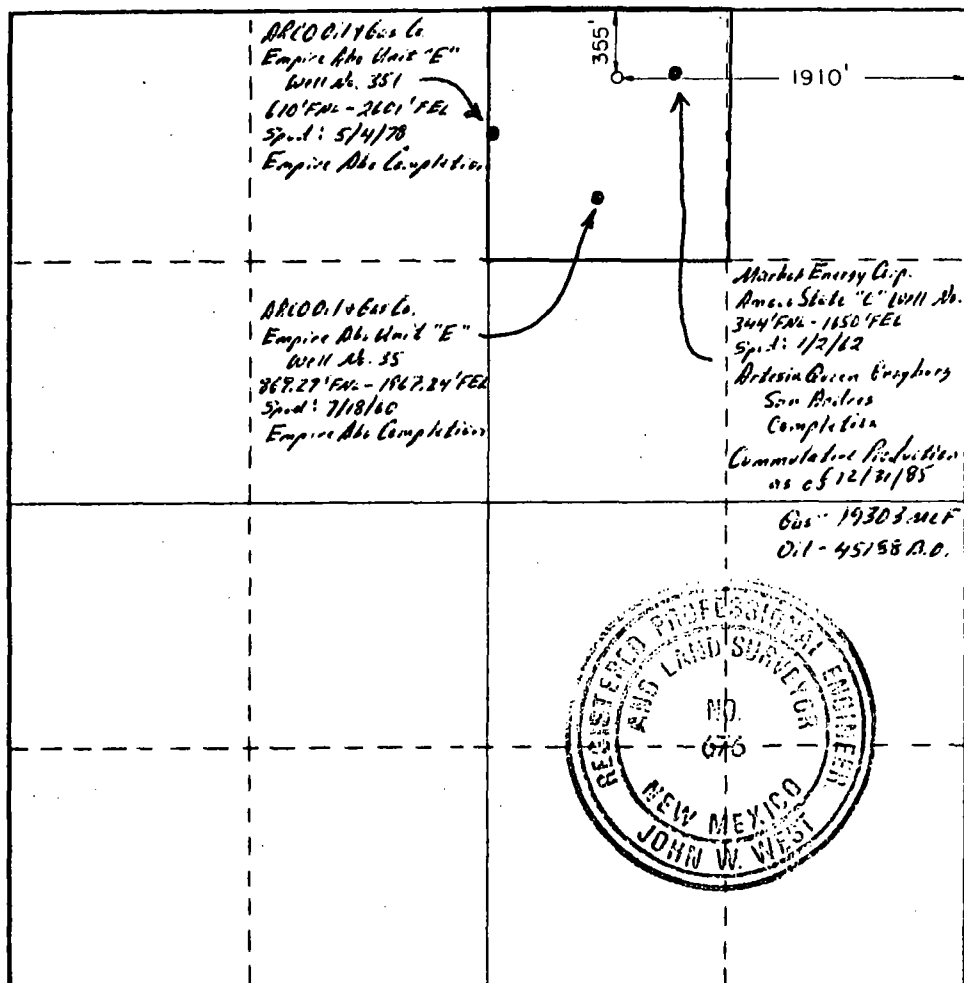 ARCO Oil & Gas Co.
Empire Abo Unit "E"
Well No. 351
610' FNL - 2601' FEL
Spud: 5/4/78
Empire Abo Completion
355'
1910'
ARCO Oil & Gas Co.
Empire Abo Unit "E"
Well No. 35
869.27' FNL - 1967.24' FEL
Spud: 7/18/60
Empire Abo Completion
Energy Corp.
State "C" Well No.
344' FNL - 1650' FEL
Spud: 1/2/62
Artesia Queen Grayburg
San Andres
Completion
Commulative Production
as of 12/31/85
Gas - 19303 MCF
Oil - 45198 B.O.
REGISTERED PROFESSIONAL ENGINEER
AND LAND SURVEYOR
NO.
676
NEW MEXICO
JOHN W. WEST